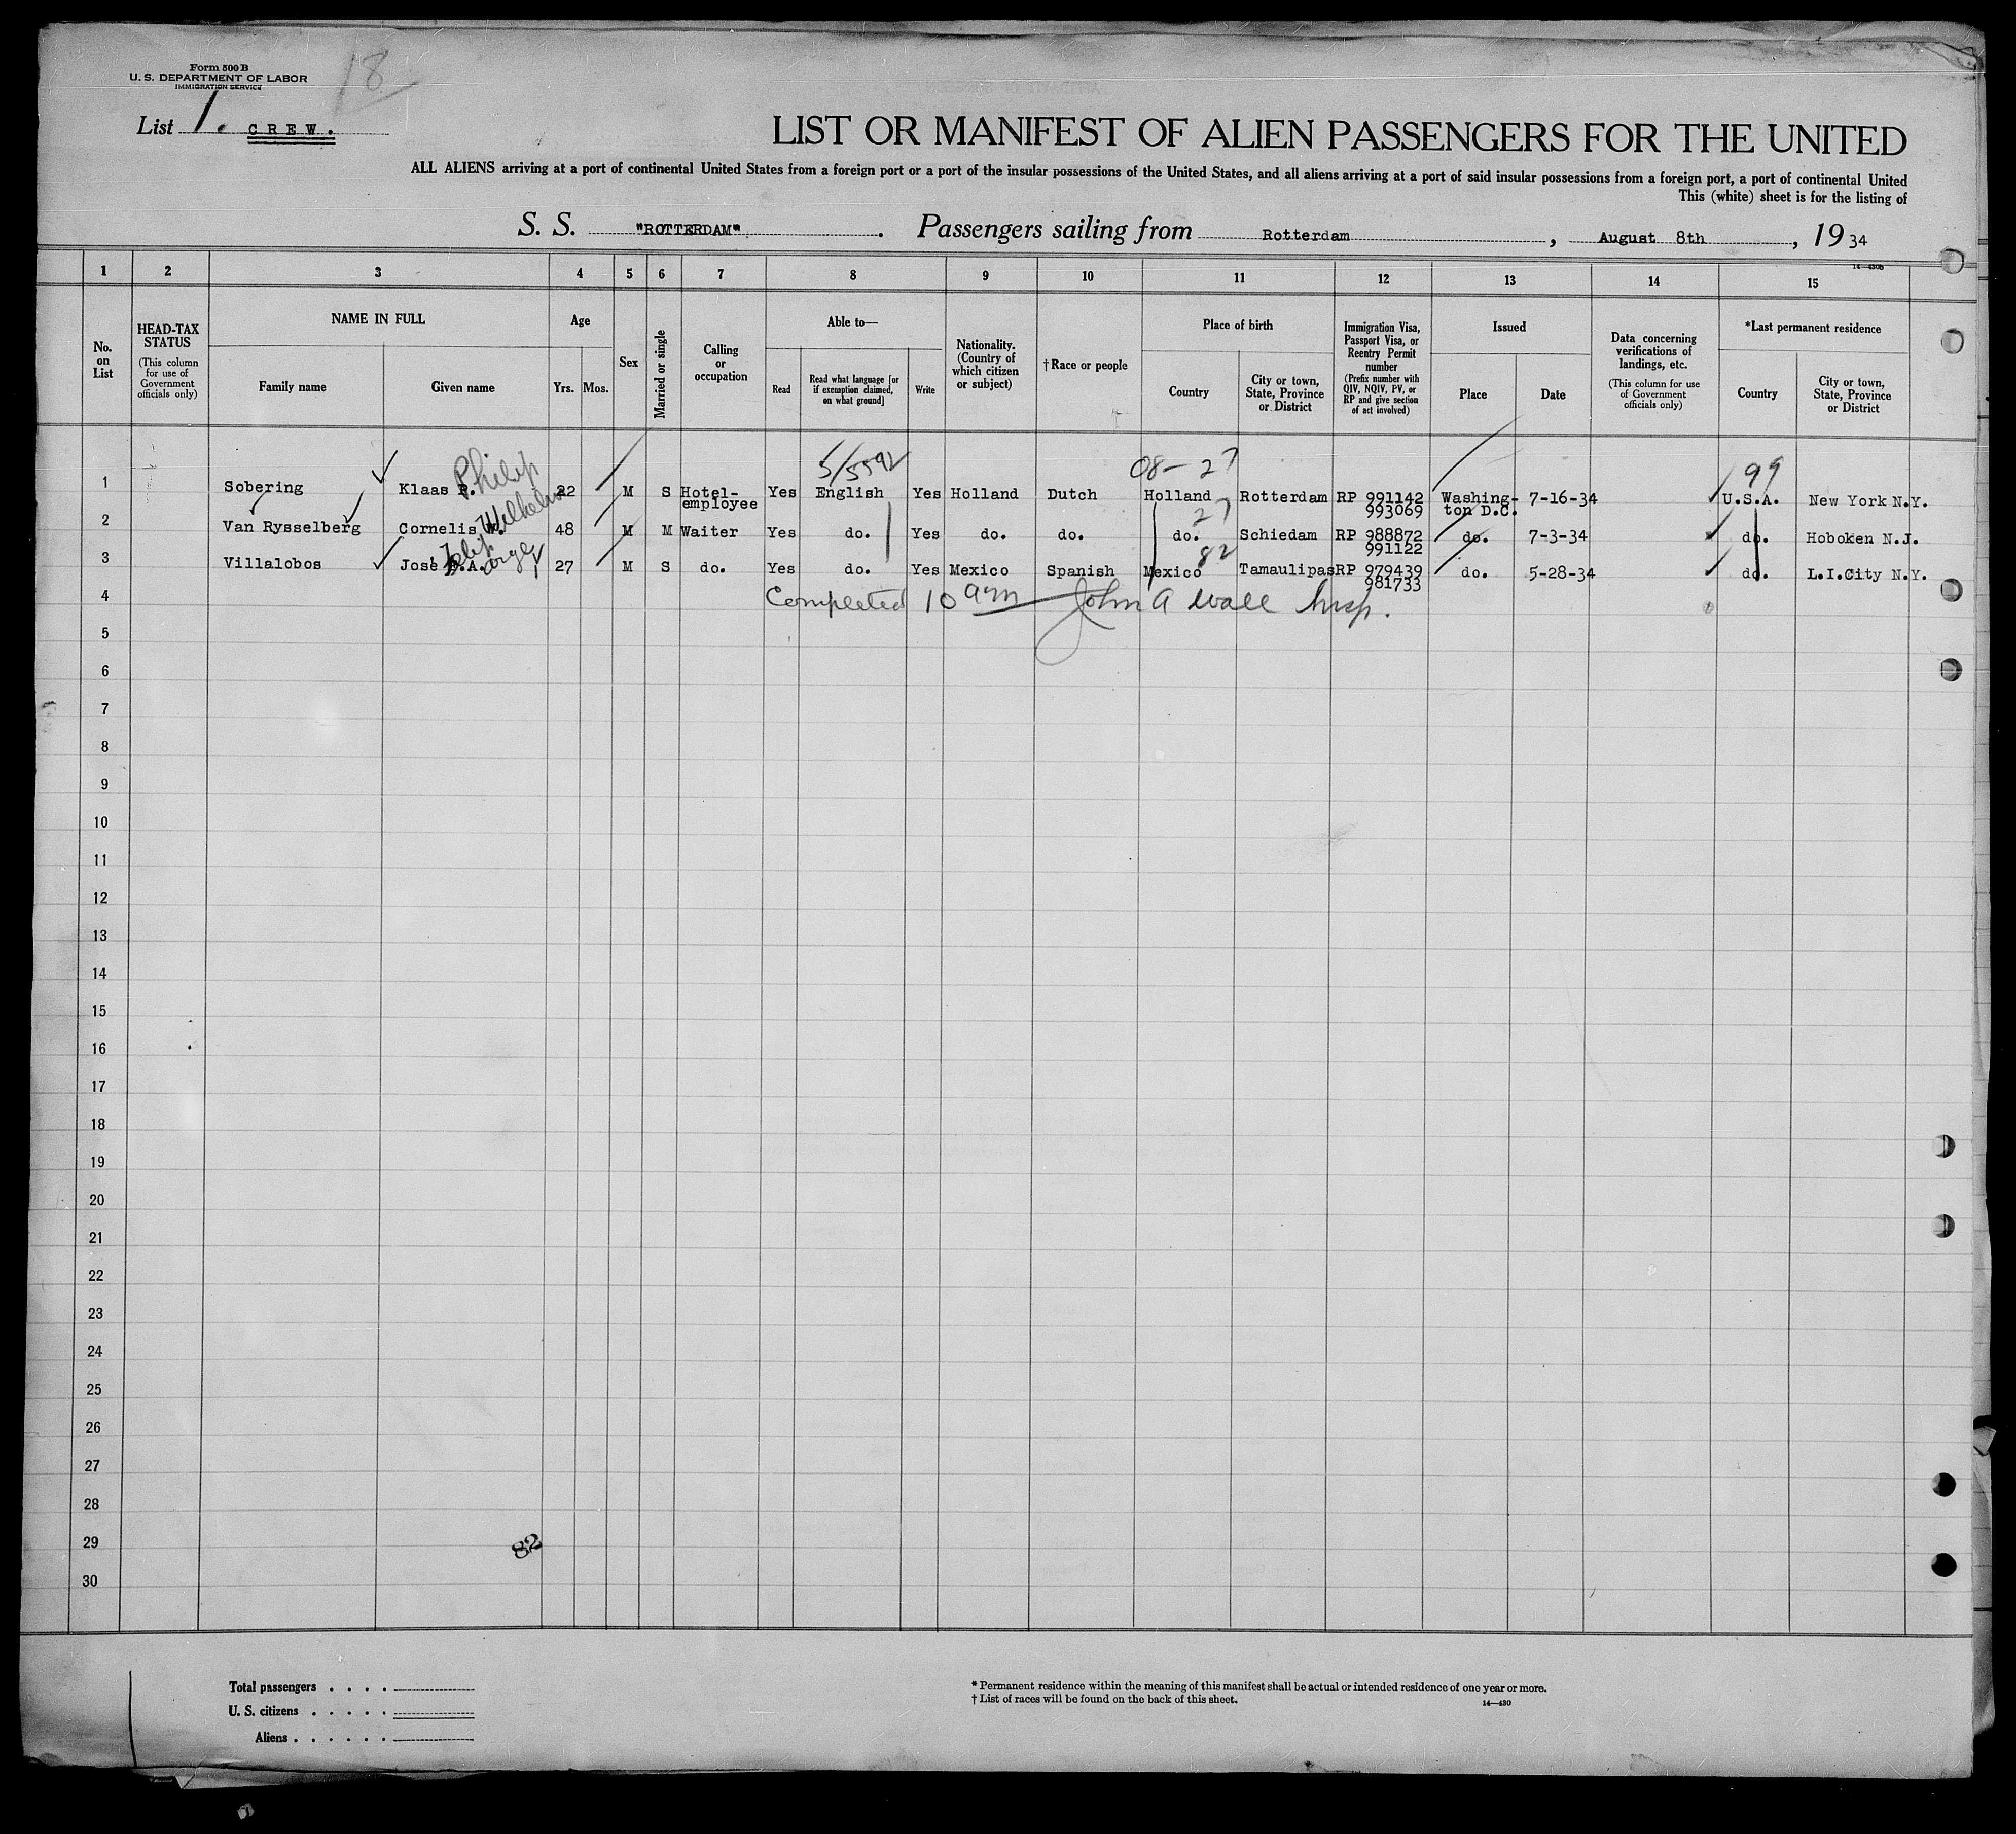 Form 500 B
U. S. DEPARTMENT OF LABOR
IMMIGRATION SERVICE
18
List 1. CREW.
LIST OR MANIFEST OF ALIEN PASSENGERS FOR THE UNITED
ALL ALIENS arriving at a port of continental United States from a foreign port or a port of the insular possessions of the United States, and all aliens arriving at a port of said insular possessions from a foreign port, a port of continental United
This (white) sheet is for the listing of
S. S. "ROTTERDAM". Passengers sailing from Rotterdam, August 8th, 19 34
14-430B
1 2 3 4 5 6 7 8 9 10 11 12 13 14 15
No. on List
HEAD-TAX STATUS
(This column for use of Government officials only)
NAME IN FULL
Family name
Given name
Age
Yrs. Mos.
Sex
Married or single
Calling or occupation
Able to—
Read
Read what language [or if exemption claimed, on what ground]
Write
Nationality. (Country of which citizen or subject)
† Race or people
Place of birth
Country
City or town, State, Province or District
Immigration Visa, Passport Visa, or Reentry Permit number
(Prefix number with QIV, NQIV, PV, or RP and give section of act involved)
Issued
Place
Date
Data concerning verifications of landings, etc.
(This column for use of Government officials only)
*Last permanent residence
Country
City or town, State, Province or District
Philip 5/5592 08-27 99
1 Sobering Klaas P. 22 M S Hotel-employee Yes English Yes Holland Dutch Holland Rotterdam RP 991142 993069 Washington D.C. 7-16-34 U.S.A. New York N.Y.
Wilhelm 27
2 Van Rysselberg Cornelis W. 48 M M Waiter Yes do. Yes do. do. do. Schiedam RP 988872 991122 do. 7-3-34 do. Hoboken N.J.
82
3 Villalobos José 27 M S do. Yes do. Yes Mexico Spanish Mexico Tamaulipas RP 979439 981733 do. 5-28-34 do. L.I.City N.Y.
4 Completed 10 am John A Wall Insp.
5
6
7
8
9
10
11
12
13
14
15
16
17
18
19
20
21
22
23
24
25
26
27
28
29 82
30
Total passengers . . . .
U. S. citizens . . . . .
Aliens . . . . . .
* Permanent residence within the meaning of this manifest shall be actual or intended residence of one year or more.
† List of races will be found on the back of this sheet.
14—430